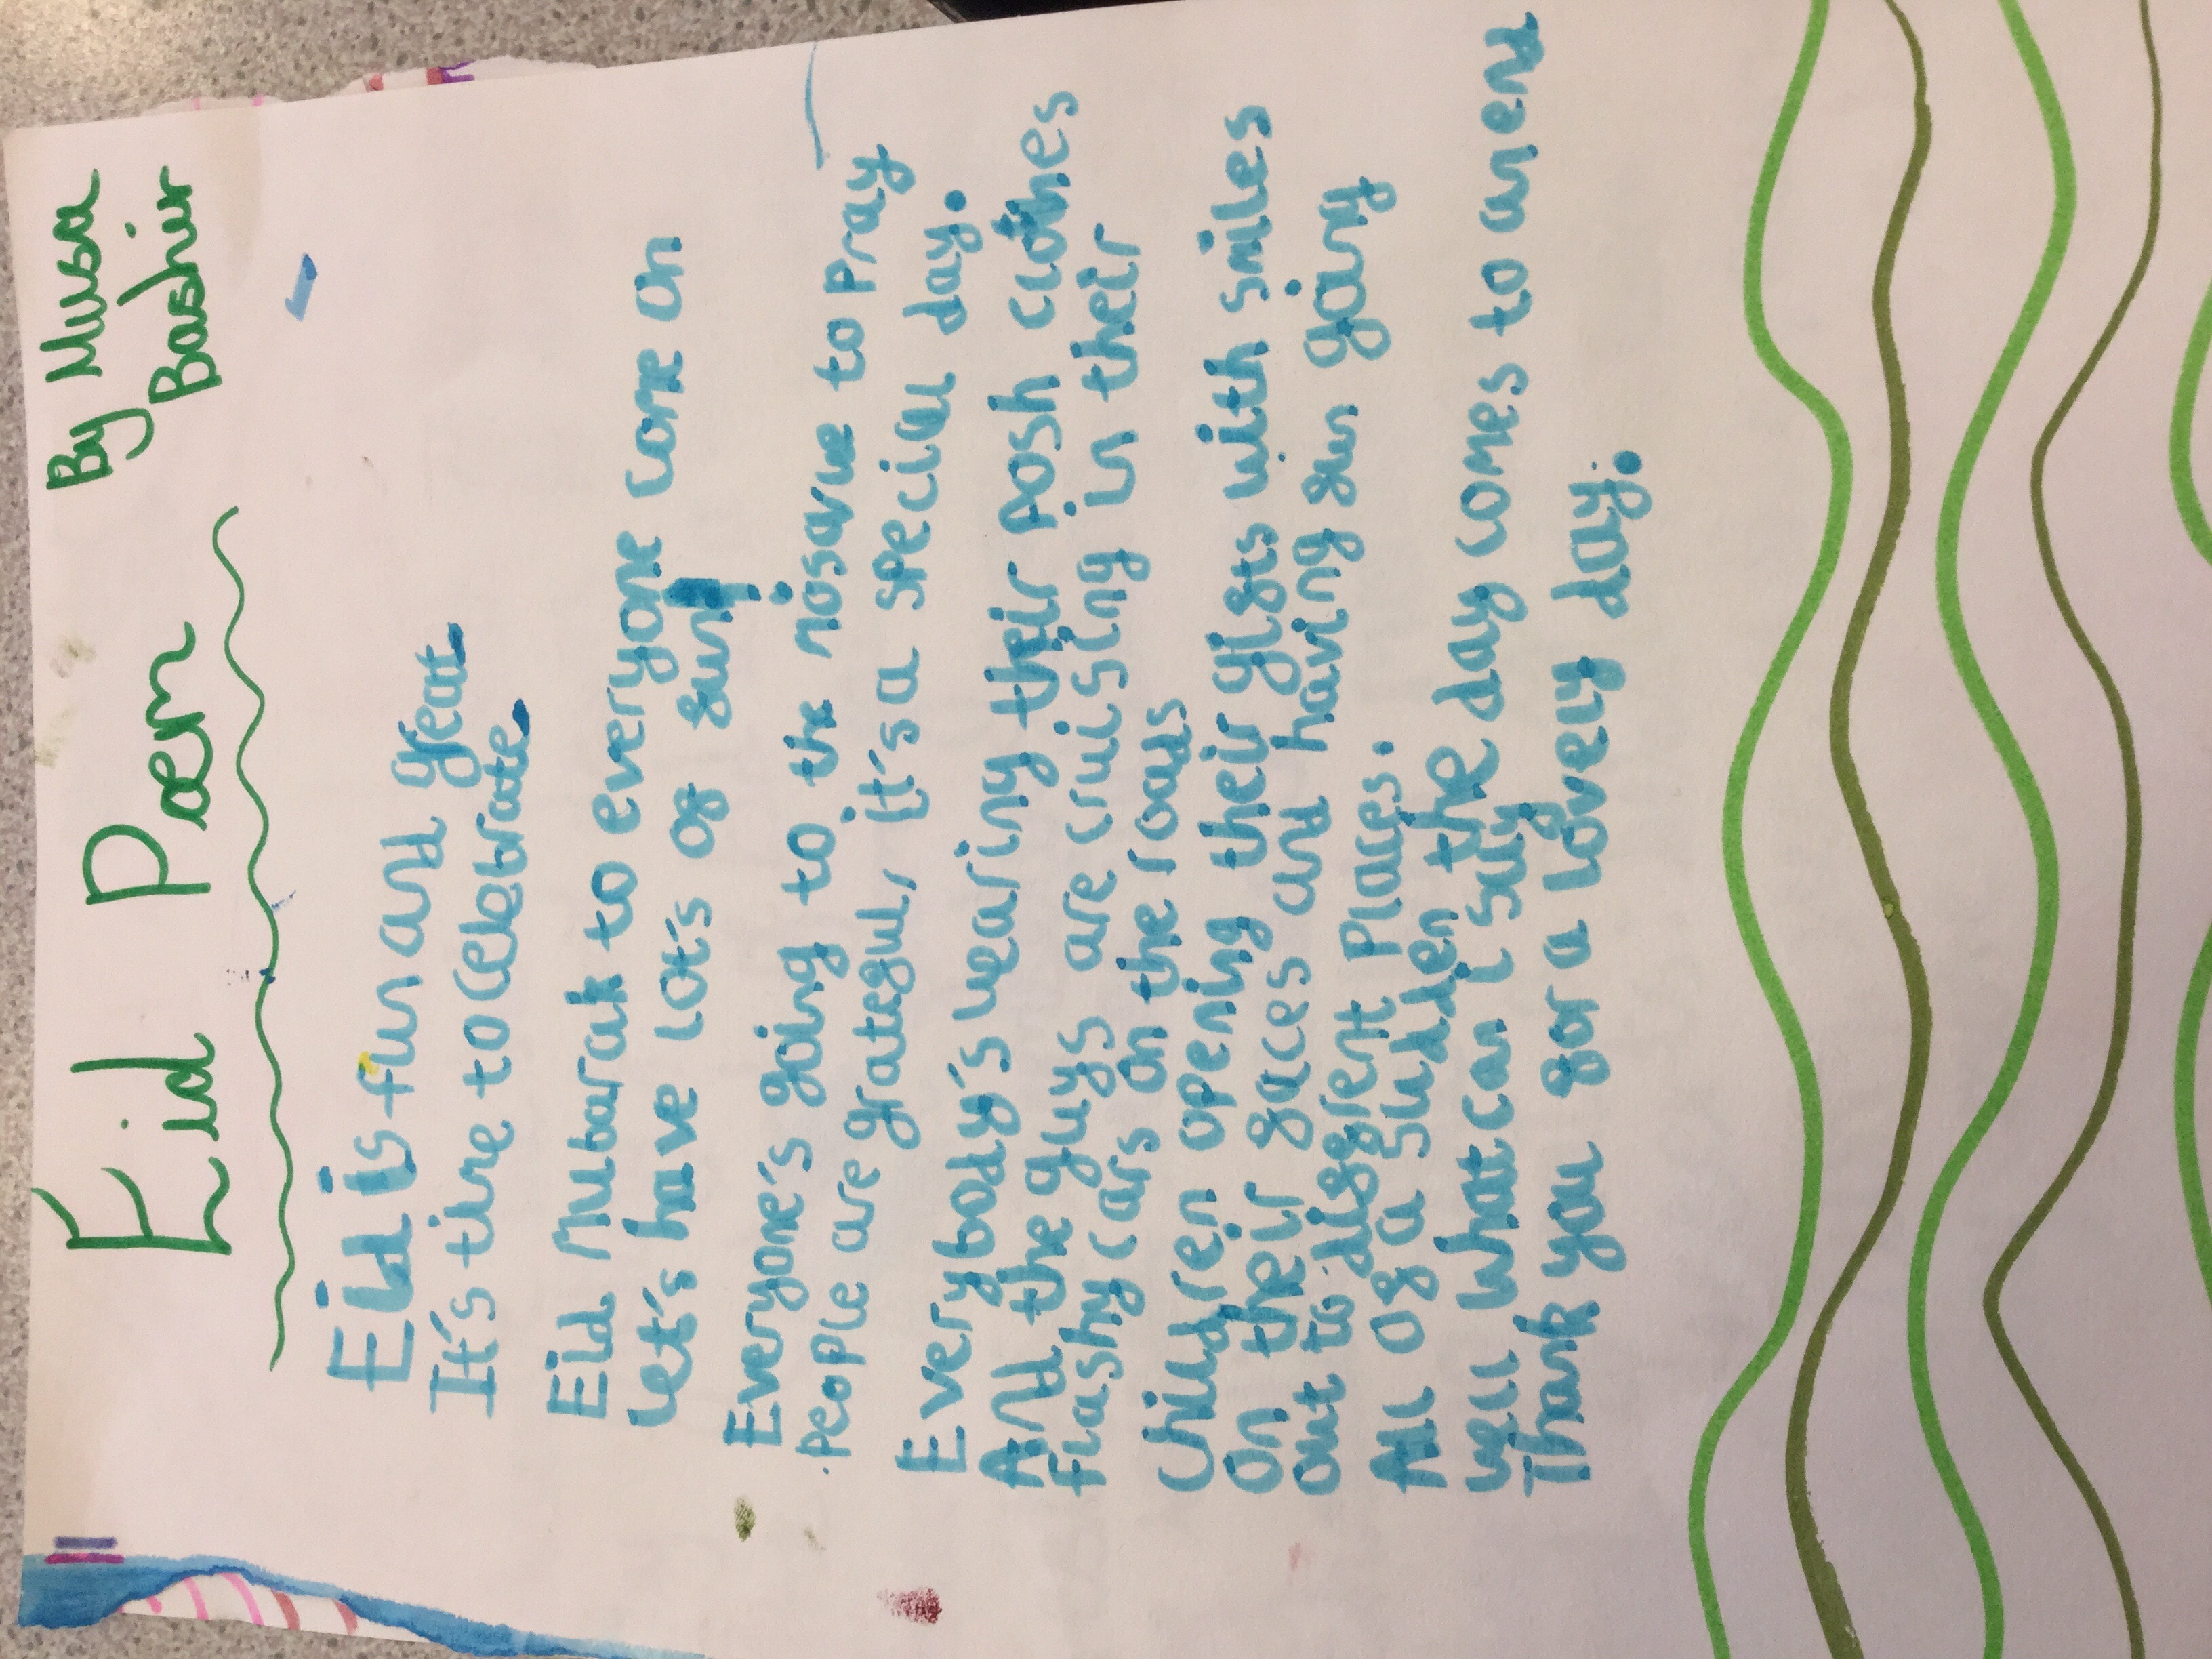 Eid Poem
By Musa
Bashir
Eid is fun and great
It's time to celebrate
Eid Mubarak to everyone come on
let's have lot's of fun!
Everyone's going to the mosque to pray
people are grateful, it's a special day.
Everybody's wearing their posh clothes
And the guys are cruising in their
flashy cars on the roads
Children opening their gifts with smiles
On their faces and having fun going
out to diffrent places.
All of a sudden the day comes to an end
well what can i say
Thank you for a lovely day.